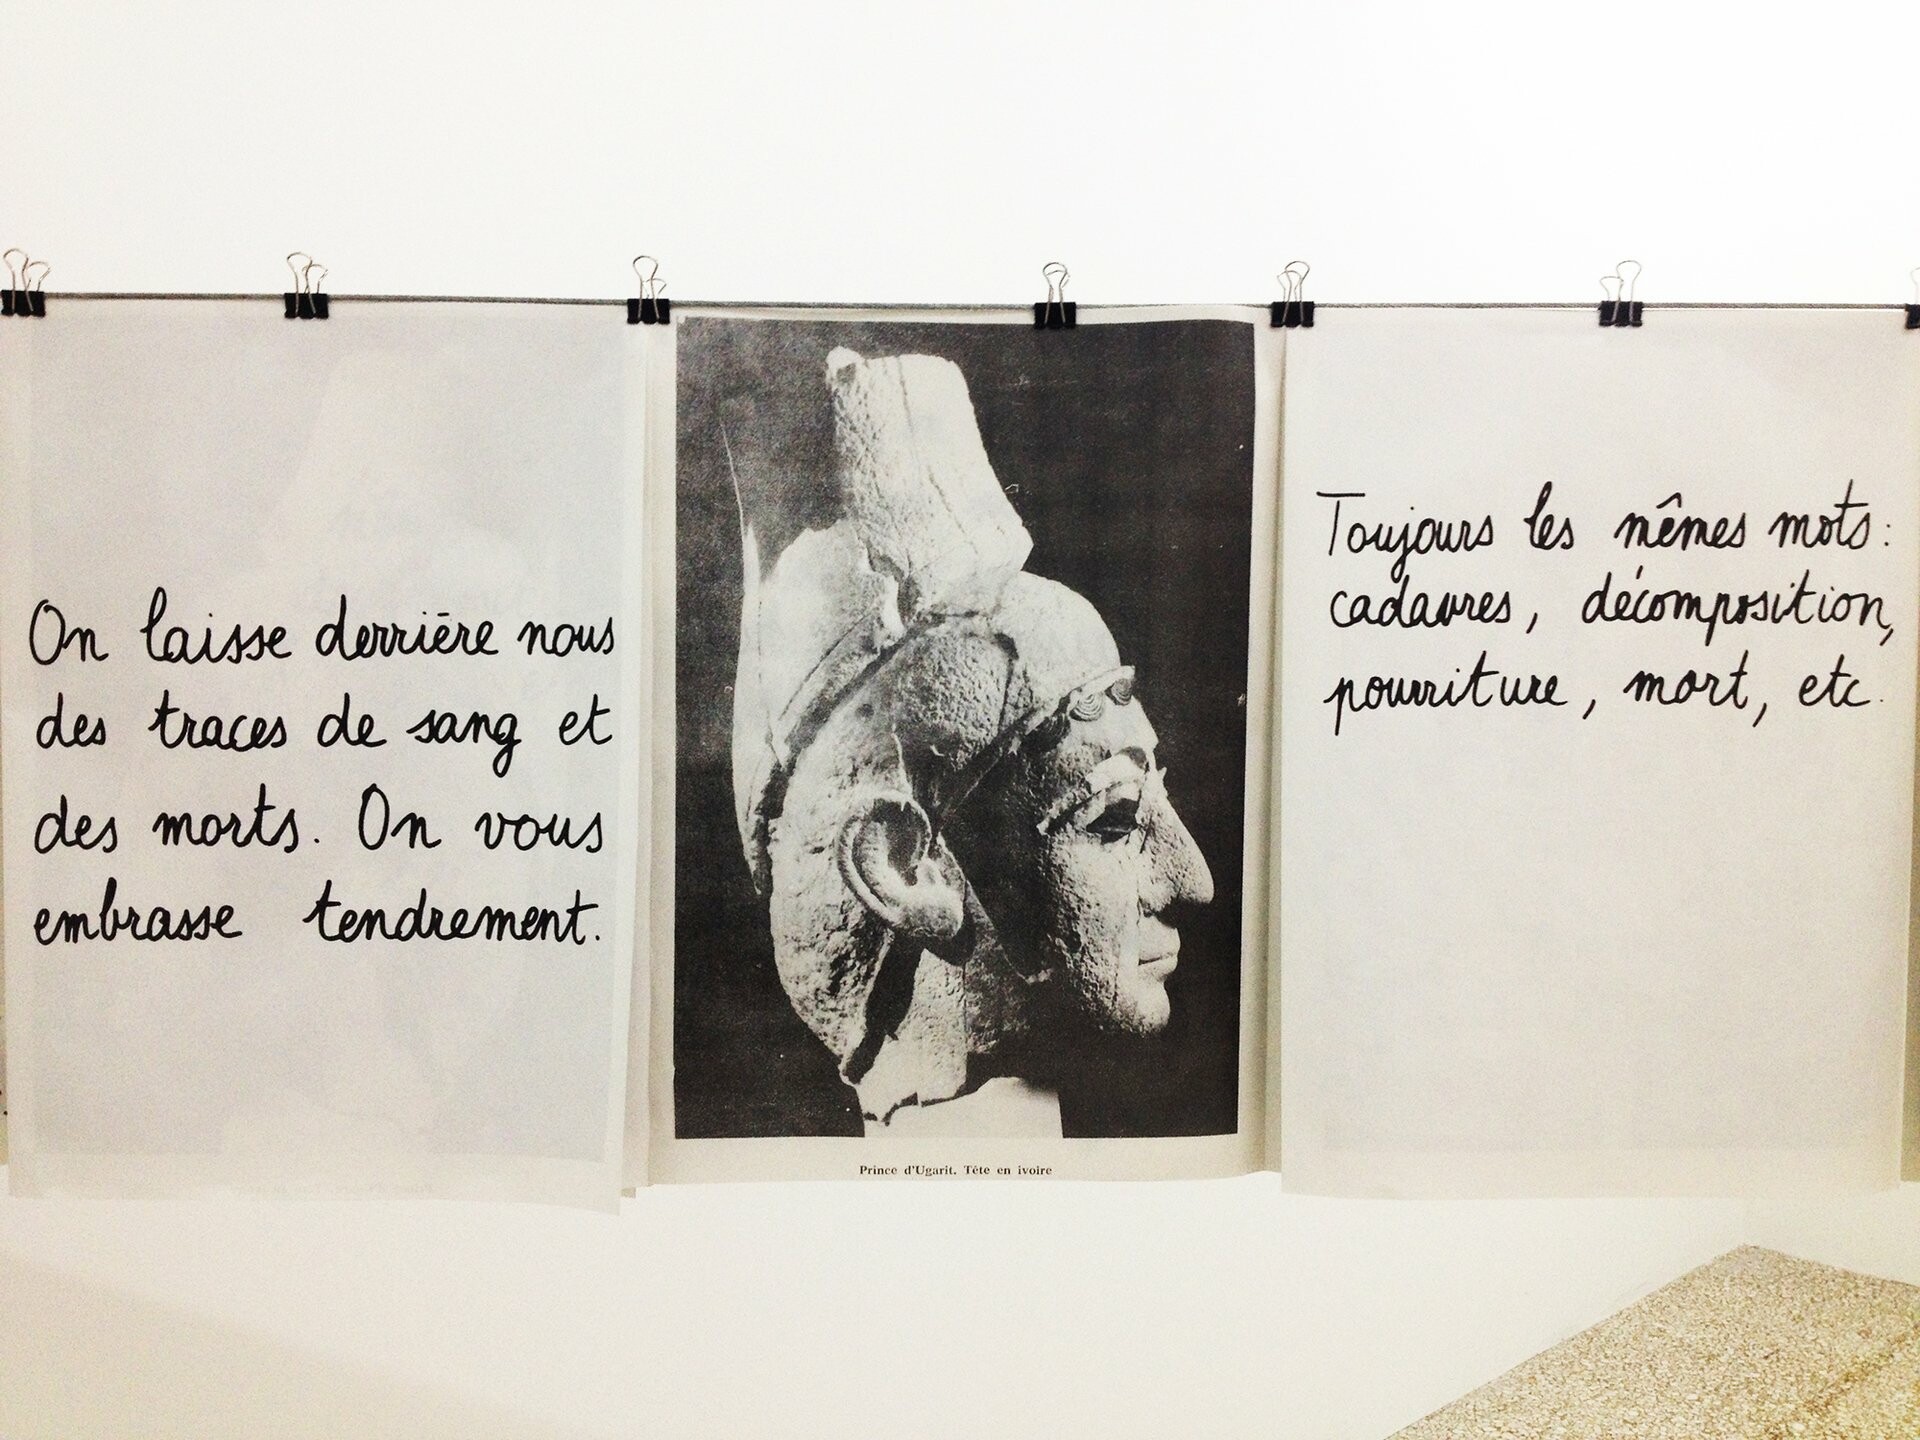 On laisse derrière nous
des traces de sang et
des morts. On vous
embrasse tendrement.
Prince d'Ugarit. Tête en ivoire
Toujours les mêmes mots :
cadavres, décomposition,
pourriture, mort, etc.